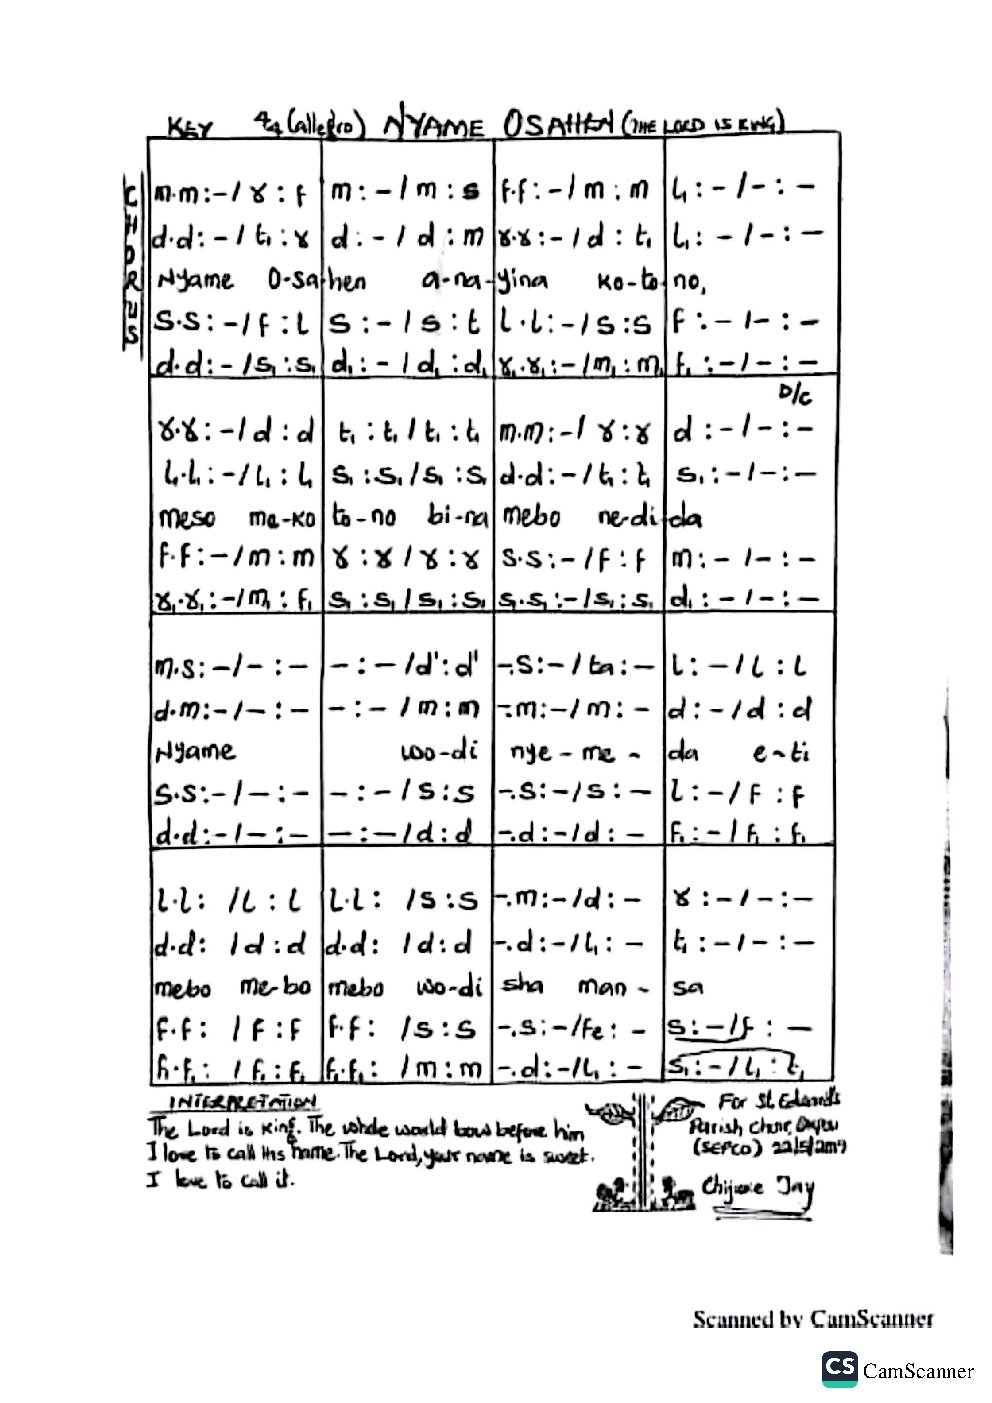 KEY 4/4 (allegro) NYAME OSAHEN (THE LORD IS KING)
CHORUS
m.m:-/ r : f | m:-/m:s | f.f:-/m:m | l₁:-/-:-
d.d:-/ t₁:r | d:-/d:m | r.r:-/d:t₁ | l₁:-/-:-
Nyame O-sa-hen a-na-yina ko-to-no,
s.s:-/f:l | s:-/s:t | l.l:-/s:s | f:-/-:-
d.d:-/s₁:s₁ | d₁:-/d₁:d₁ | r₁.r₁:-/m₁:m₁ | f₁:-/-:-
D/C
r.r:-/d:d | t₁:t₁/t₁:t₁ | m.m:-/r:r | d:-/-:-
l₁.l₁:-/l₁:l₁ | s₁:s₁/s₁:s₁ | d.d:-/t₁:t₁ | s₁:-/-:-
meso me-ko to-no bi-na mebo ne-di-da
f.f:-/m:m | r:r/r:r | s.s:-/f:f | m:-/-:-
r₁.r₁:-/m₁:f₁ | s₁:s₁/s₁:s₁ | s₁.s₁:-/s₁:s₁ | d₁:-/-:-
m.s:-/-:- | -:-/d':d' | -.s:-/ta:- | l:-/l:l
d.m:-/-:- | -:-/m:m | -.m:-/m:- | d:-/d:d
Nyame wo-di nye-me-da e-ti
s.s:-/-:- | -:-/s:s | -.s:-/s:- | l:-/f:f
d.d:-/-:- | -:-/d:d | -.d:-/d:- | f₁:-/f₁:f₁
l.l: /l:l | l.l: /s:s | -.m:-/d:- | r:-/-:-
d.d: /d:d | d.d: /d:d | -.d:-/l₁:- | t₁:-/-:-
mebo me-bo mebo wo-di sha man-sa
f.f: /f:f | f.f: /s:s | -.s:-/fe:- | s:-/f:-
f₁.f₁: /f₁:f₁ | f₁.f₁: /m:m | -.d:-/l₁:- | s₁:-/l₁:t₁
INTERPRETATION
The Lord is King. The whole world bow before him
I love to call His name. The Lord, your name is sweet.
I love to call it.
For St. Edward's
Parish Choir
(SEPCO)
Chijioke Jay
Scanned by CamScanner
CS CamScanner